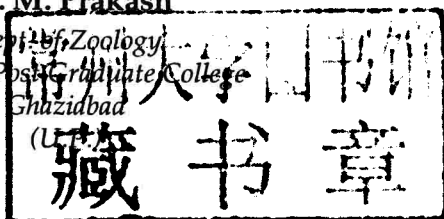 . M. Prakash
ept. of Zoology
Post-Graduate College
Ghaziabad
(U.P.)
常州大学图书馆
藏书章